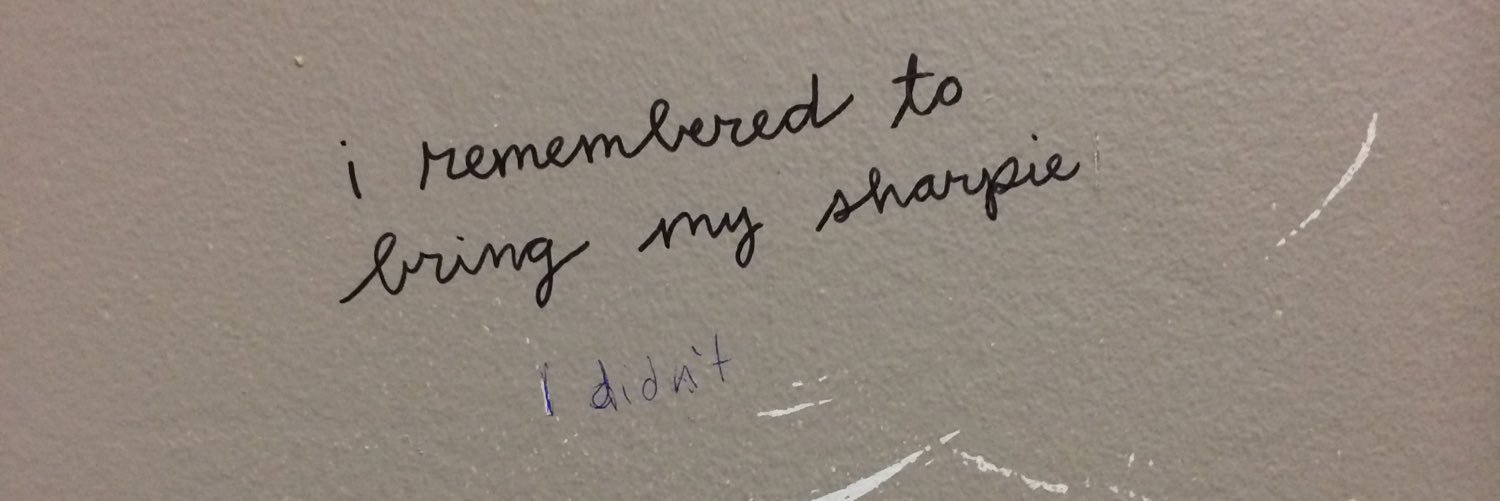 i remembered to
bring my sharpie
I didn't